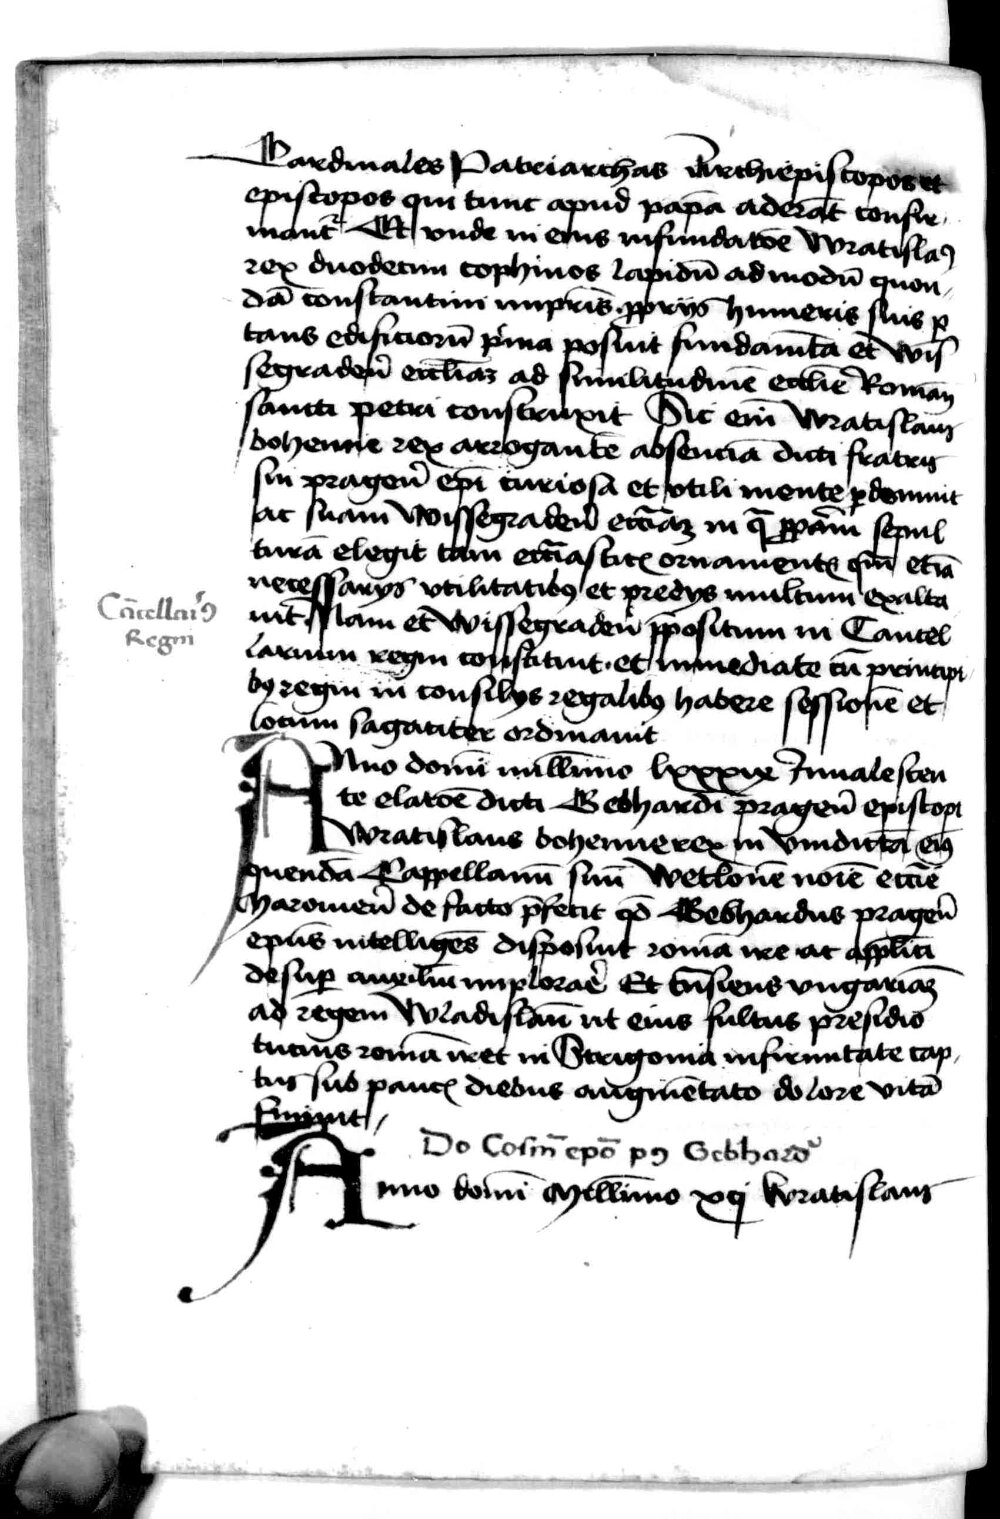 Cardinales Patriarchas Archiepiscopos et
episcopos qui tunc apud papā aderāt confir,
mant᷑ Et vnde in eius infundatōe Wratislaꝰ
rex duodecim cophinos lapidū ad modū quon,
dā Constantini impr̄is ꝓprijs humeris suis p
tans edificiorū p̓ma posuit fundamēta et Wis
segradeñ eccliaꝫ ad similitudinē ecclie Romañ
sancti petri construxit Sic em̄ Wratislaus
bohemie rex arrogantē absenciā dicti fratris
sui prageñ ep̄i curiosa et vtili mente ꝑdomuit
ac suam Wissegradeñ eccīaꝫ in q̄ ꝓpām sepul
turā elegit tam ecc̄iasticꝭ ornamentꝭ qm̄ etiā
necessarijs vtilitatibꝰ et predijs multum exalta
uit Nam et Wissegradeñ p̄positum in Cancel
Cācellariꝰ
Regni
larium regni constituit et immediate cū principi
bꝰ regni in consilijs regalibꝰ habere sessionē et
locum sagaciter ordinauit
Anno domī millīmo lxxxix Inualescen
te elatōe dicti Gebhardi prageñ episcopi
Wratislaus bohemie rex in vindictā eiꝰ
quendā Cappellanū suū Wetlonē noīe ecc̄ie
Moraueñ de facto p̄fecit qd̄ Gebhardus prageñ
ep̄us intelligēs disposuit romā ire ac applici
desuꝑ auxiliū implorar̄ Et trāsiens vngariaꝫ
ad regem Wladislaū vt eius fultus presidio
tucius romā iret in Strigonia infirmitate cap,
tus sub paucꝭ diebus augmētato dolore vitā
finiuit
De Cosm̄ ep̄o pꝰ Gebhardū
Anno domī Millīmo xcj Wratislaus